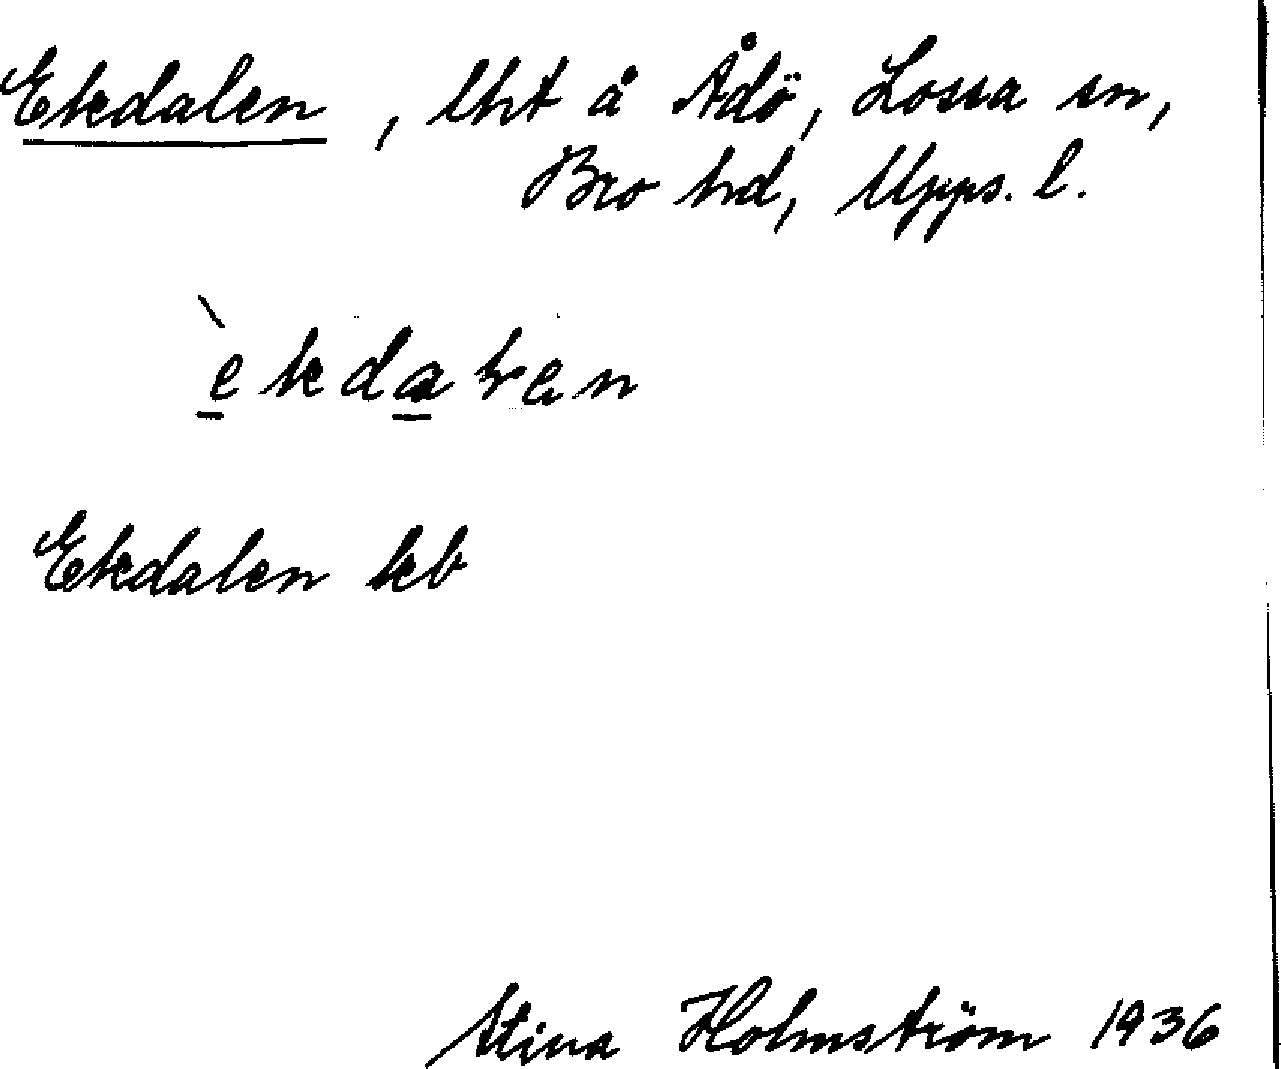 Ekdalen, lht å Ådö, Lossa sn,
Bro hd, Upps. l.
Ekdalen kb
Stina Holmström 1936